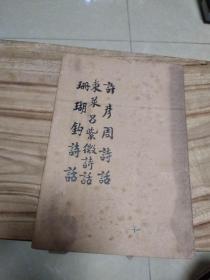 許彦周詩話
東萊吕紫微詩話
珊瑚鈎詩話